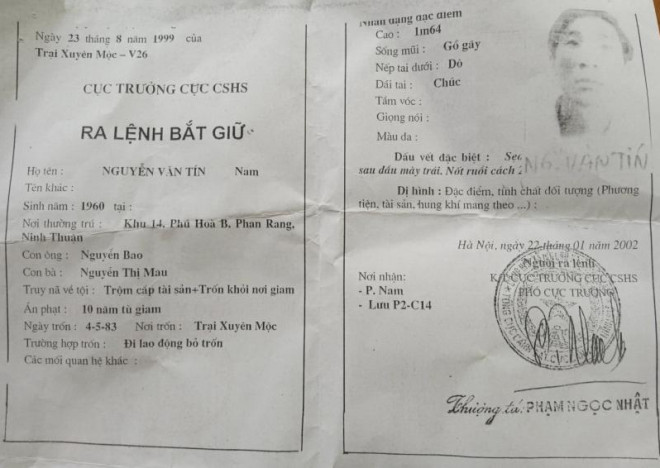 Ngày 23 tháng 8 năm 1999 của
Trại Xuyên Mộc - V26
CỤC TRƯỞNG CỤC CSHS
RA LỆNH BẮT GIỮ
Họ tên : NGUYỄN VĂN TÍN Nam
Tên khác :
Sinh năm : 1960 tại :
Nơi thường trú : Khu 14, Phú Hoà B, Phan Rang,
Ninh Thuận
Con ông : Nguyễn Bao
Con bà : Nguyễn Thị Mau
Truy nã về tội : Trộm cắp tài sản+Trốn khỏi nơi giam
Án phạt : 10 năm tù giam
Ngày trốn : 4-5-83 Nơi trốn : Trại Xuyên Mộc
Trường hợp trốn : Đi lao động bỏ trốn
Các mối quan hệ khác :
Nhân dạng đặc điểm
Cao : 1m64
Sống mũi : Gồ gãy
Nếp tai dưới : Dò
Dái tai : Chúc
Tầm vóc :
Giọng nói :
Màu da :
Dấu vết đặc biệt : Sẹo
sau đầu mày trái. Nốt ruồi cách
Dị hình : Đặc điểm, tính chất đối tượng (Phương
tiện, tài sản, hung khí mang theo ...) :
Hà Nội, ngày 22 tháng 01 năm 2002
Người ra lệnh
Nơi nhận: K/T CỤC TRƯỞNG CỤC CSHS
- P. Nam PHÓ CỤC TRƯỞNG
- Lưu P2-C14
Thượng tá: PHẠM NGỌC NHẬT